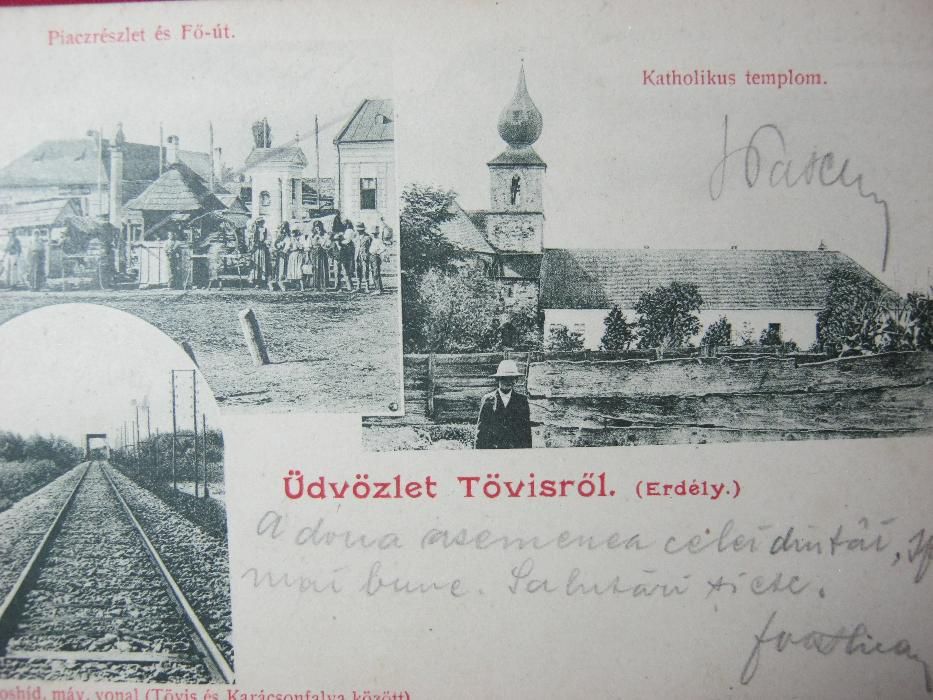 Piaczrészlet és Fő-út.
Katholikus templom.
Üdvözlet Tövisről. (Erdély.)
A doua asemenea celei dintâi,
mai bune. Salutări
oshíd, máv. vonal (Tövis és Karácsonfalva között)